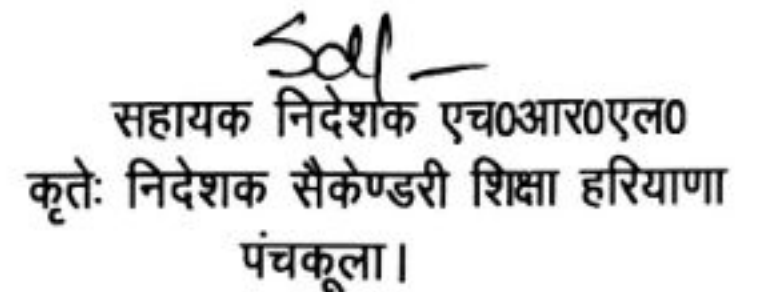 Sd/-
सहायक निदेशक एच0आर0एल0
कृतेः निदेशक सैकेण्डरी शिक्षा हरियाणा
पंचकूला।